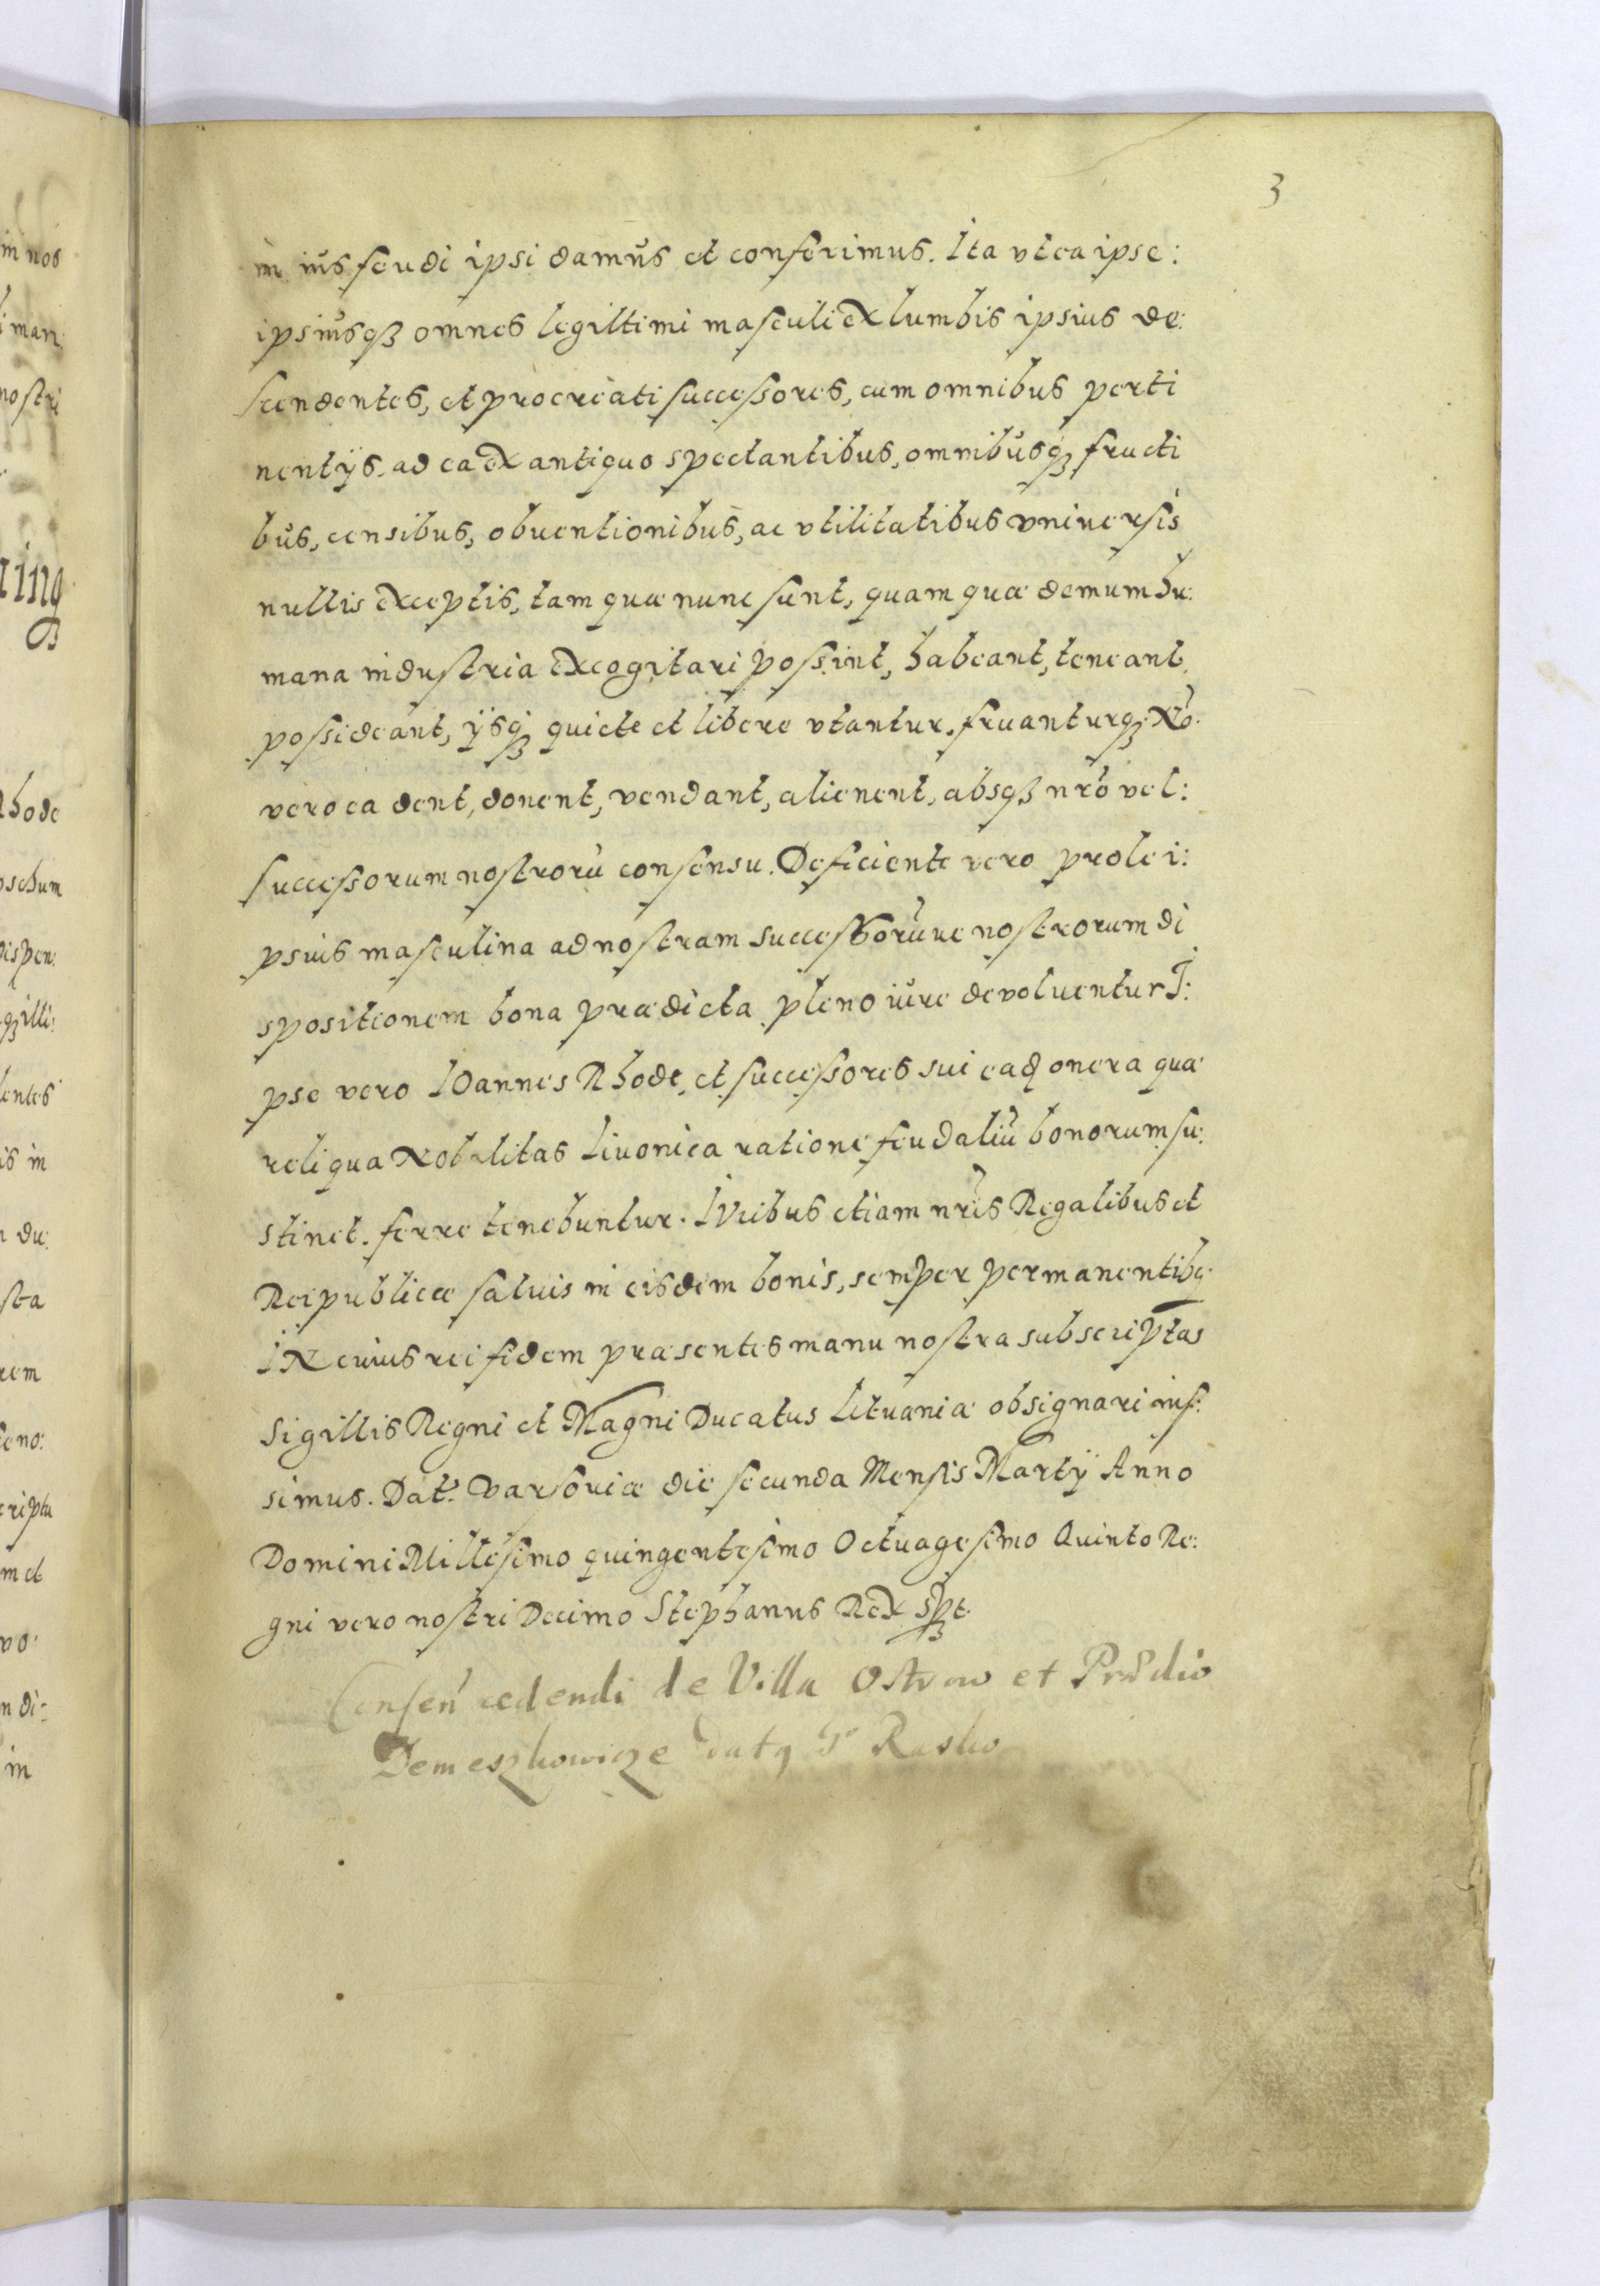 3
in ius feudi ipsi damus et conferimus. Ita vt ea ipse:
ipsiusqȝ omnes legittimi masculi ex lumbis ipsius de:
scendentes, et procreati successores, cum omnibus perti
nentijs. ad ea ex antiquo spectantibus, omnibusqȝ fructi
bus, censibus, obuentionibus, ac vtilitatibus vniuersis
nullis exceptis, tam quæ nunc sunt, quam quæ demum hu:
mana industria excogitari possint, habeant, teneant,
possideant, ijsqȝ quiete et libere vtantur. fruanturqȝ No.
vero ea dent, donent, vendant, alienent, absqȝ nr̃o vel:
successorum nostrorũ consensu. Deficiente vero prole i:
psius masculina ad nostram successorũue nostrorum di
spositionem bona prædicta pleno iure devoluentur I:
pse vero IOannes Rhode, et successores sui ead onera quæ
reliqua Nobilitas Liuonica ratione feudaliũ bonorum su:
stinet. ferre tenebuntur. IVribus etiam nr̃is Regalibus et
Reipublicæ saluis in eisdem bonis, semper permanentibq
IN cuius rei fidem præsentes manu nostra subscriptas
sigillis Regni et Magni Ducatus Lituaniæ obsignari ius:
simus. Dat. Varsoviæ die secunda Mensis Martij Anno
Domini Millesimo quingentesimo Octuagesimo Quinto Re:
gni vero nostri Decimo Stephanus Rex spt.
Consen cedendi de Villa Ostrow et Prædio
Demeszkowicze
in nos
nostri
Rhode
schum
dispen:
illi:
is in
du:
sta
rem
m et
vo
n di
in